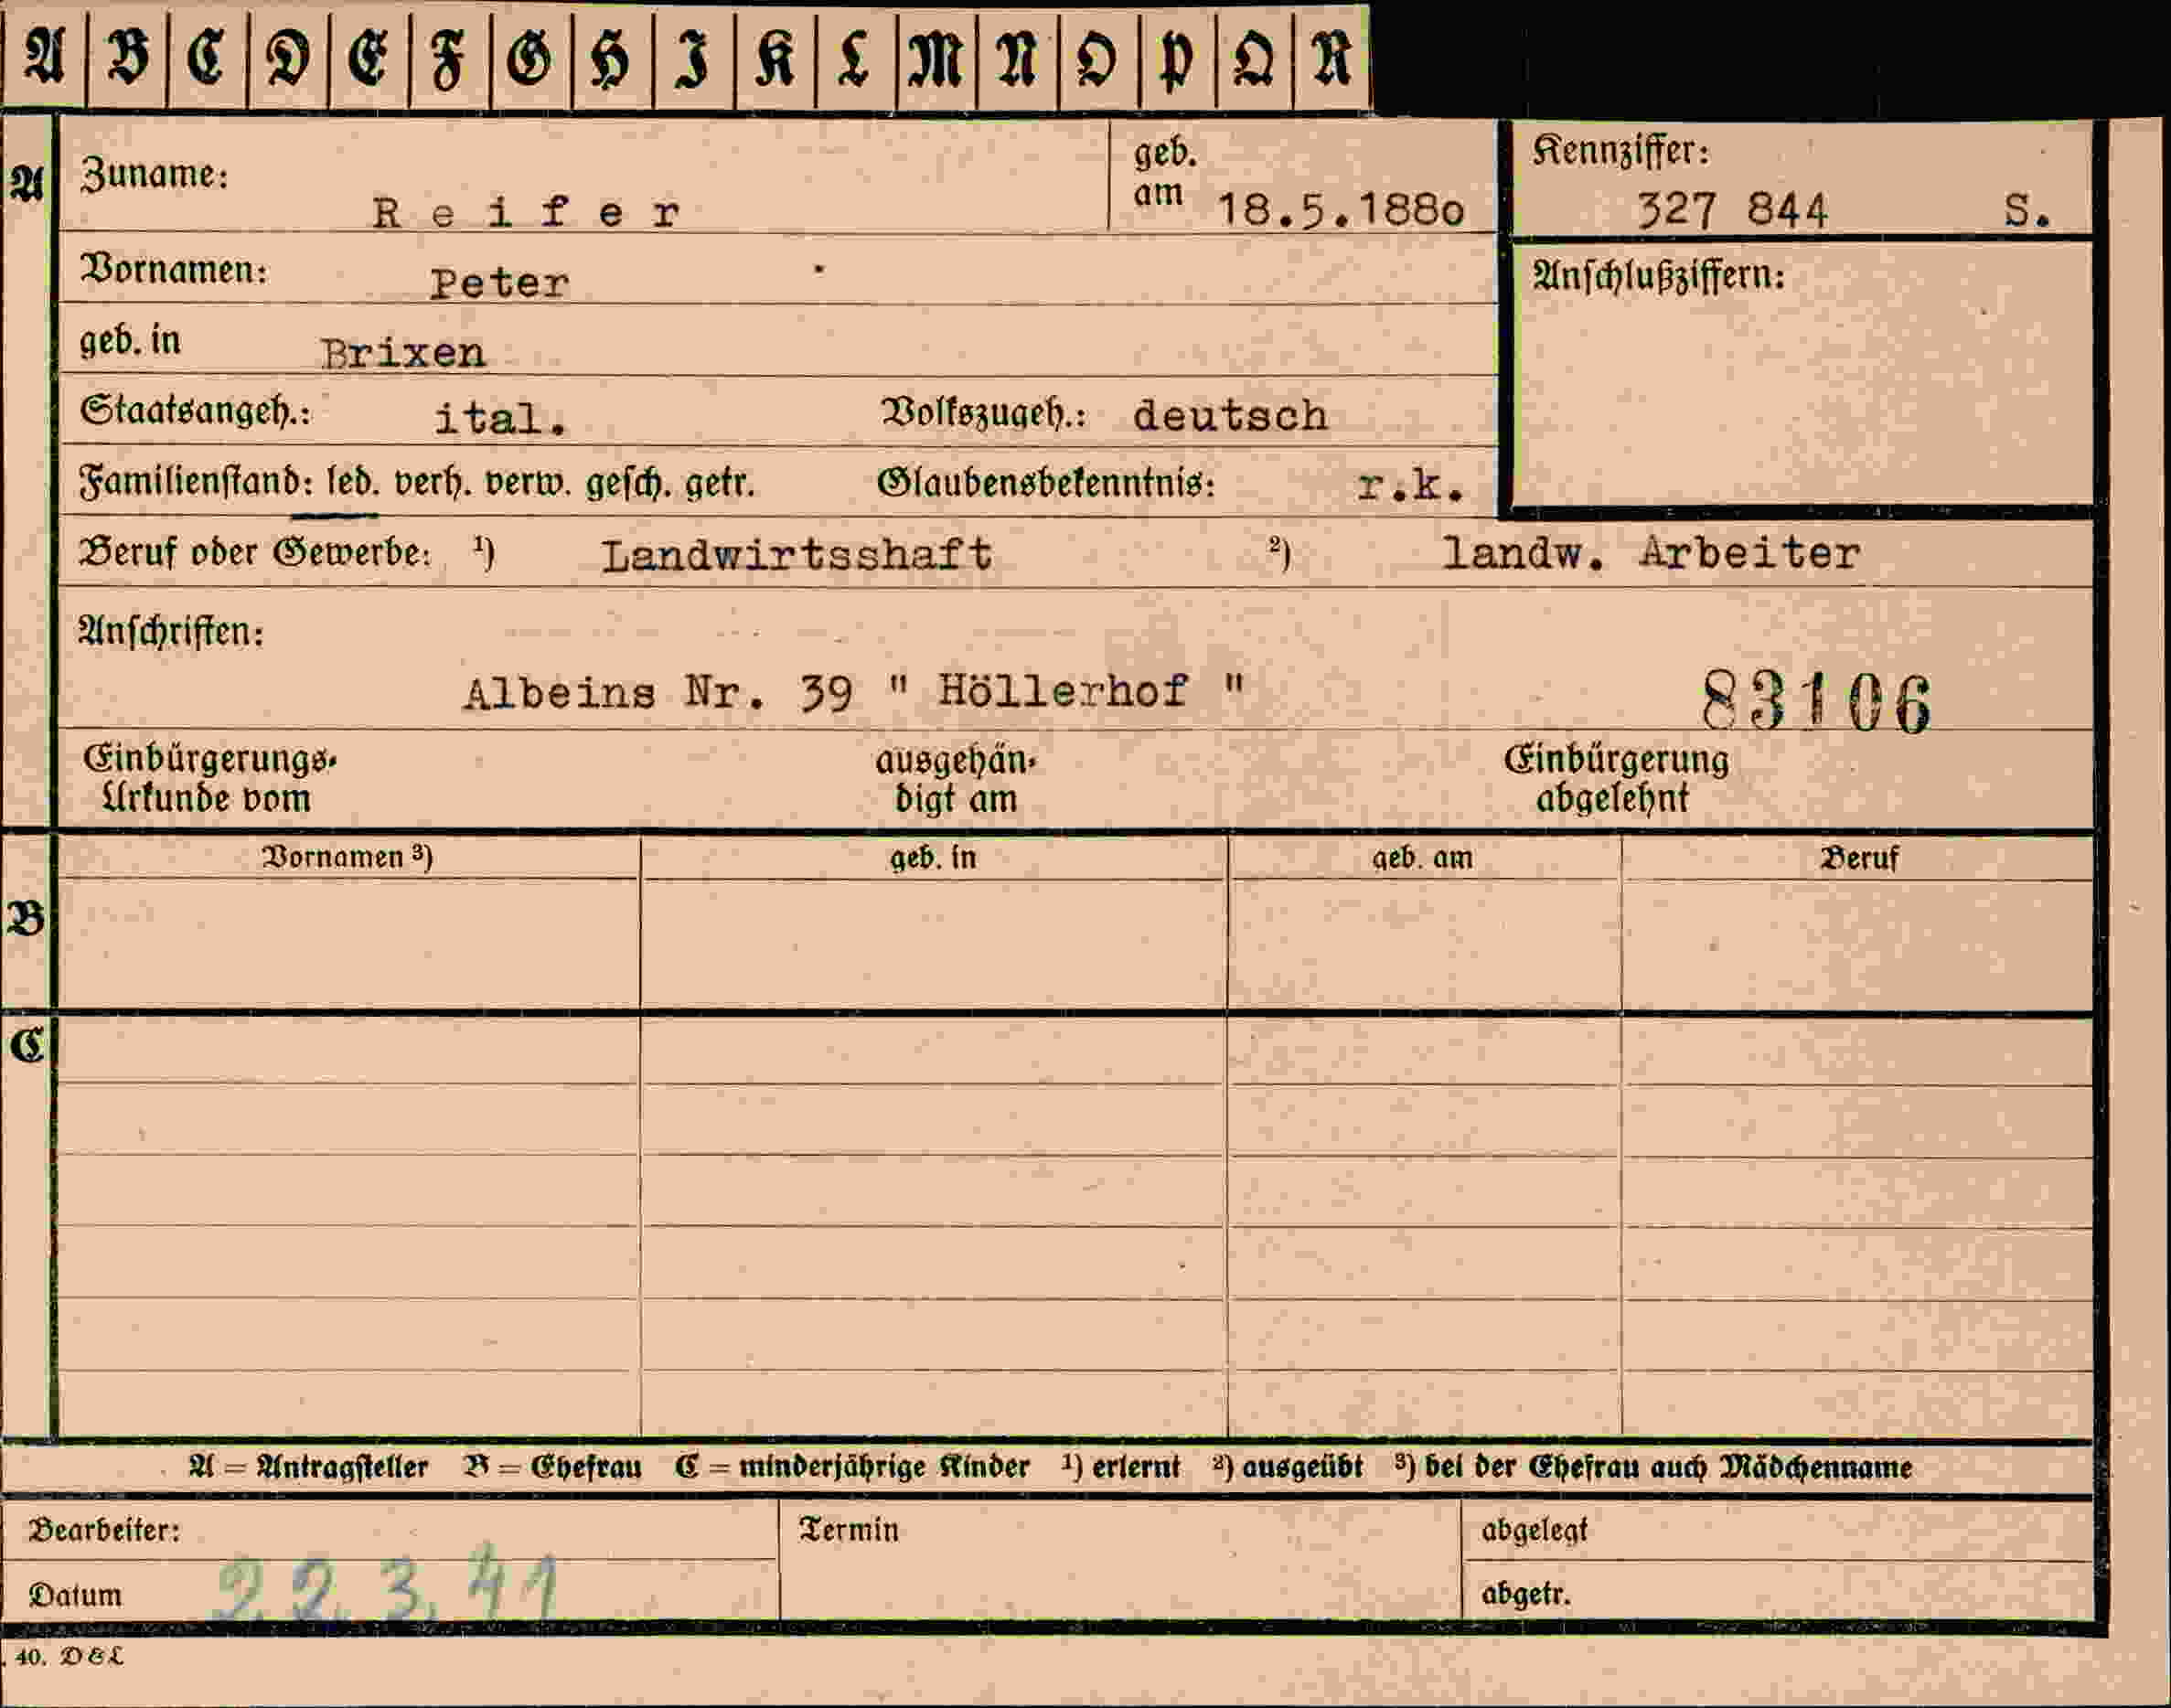 A B C D E F G H I K L M N O P Q R
A
Zuname: Reifer geb. am 18.5.188o
Kennziffer: 327 844 S.
Vornamen: Peter
Anschlußziffern:
geb. in Brixen
Staatsangeh.: ital. Volkszugeh.: deutsch
Familienstand: led. verh. verw. gesch. getr. Glaubensbekenntnis: r.k.
Beruf oder Gewerbe: 1) Landwirtsshaft 2) landw. Arbeiter
Anschriften:
Albeins Nr. 39 " Höllerhof " 83106
Einbürgerungs- ausgehän- Einbürgerung
Urkunde vom digt am abgelehnt
Vornamen 3) geb. in geb. am Beruf
B
C
A = Antragsteller B = Ehefrau C = minderjährige Kinder 1) erlernt 2) ausgeübt 3) bei der Ehefrau auch Mädchenname
Bearbeiter: Termin abgelegt
Datum 22.3.41 abgetr.
40. D&L